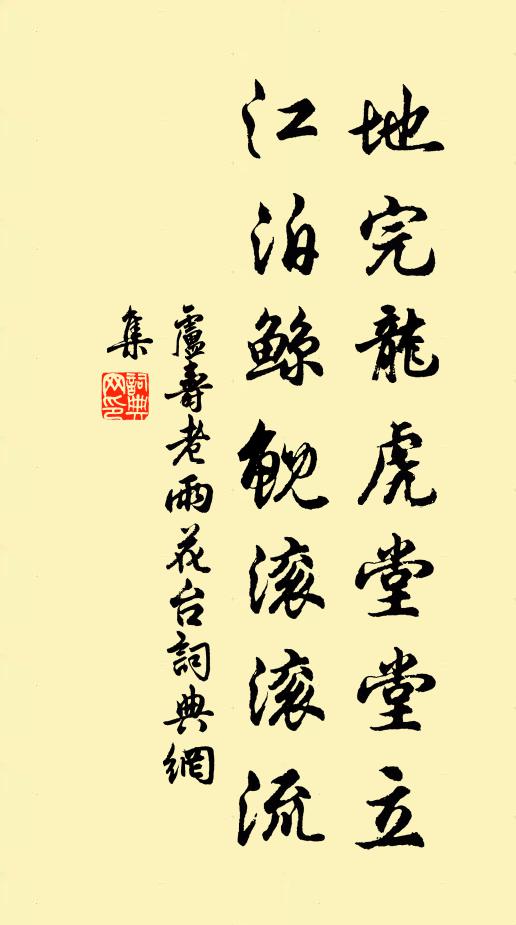 地完龍虎堂堂立
江泊鯨鯢滚滚流
盧壽老雨花台詞典網
集
詞典
网印